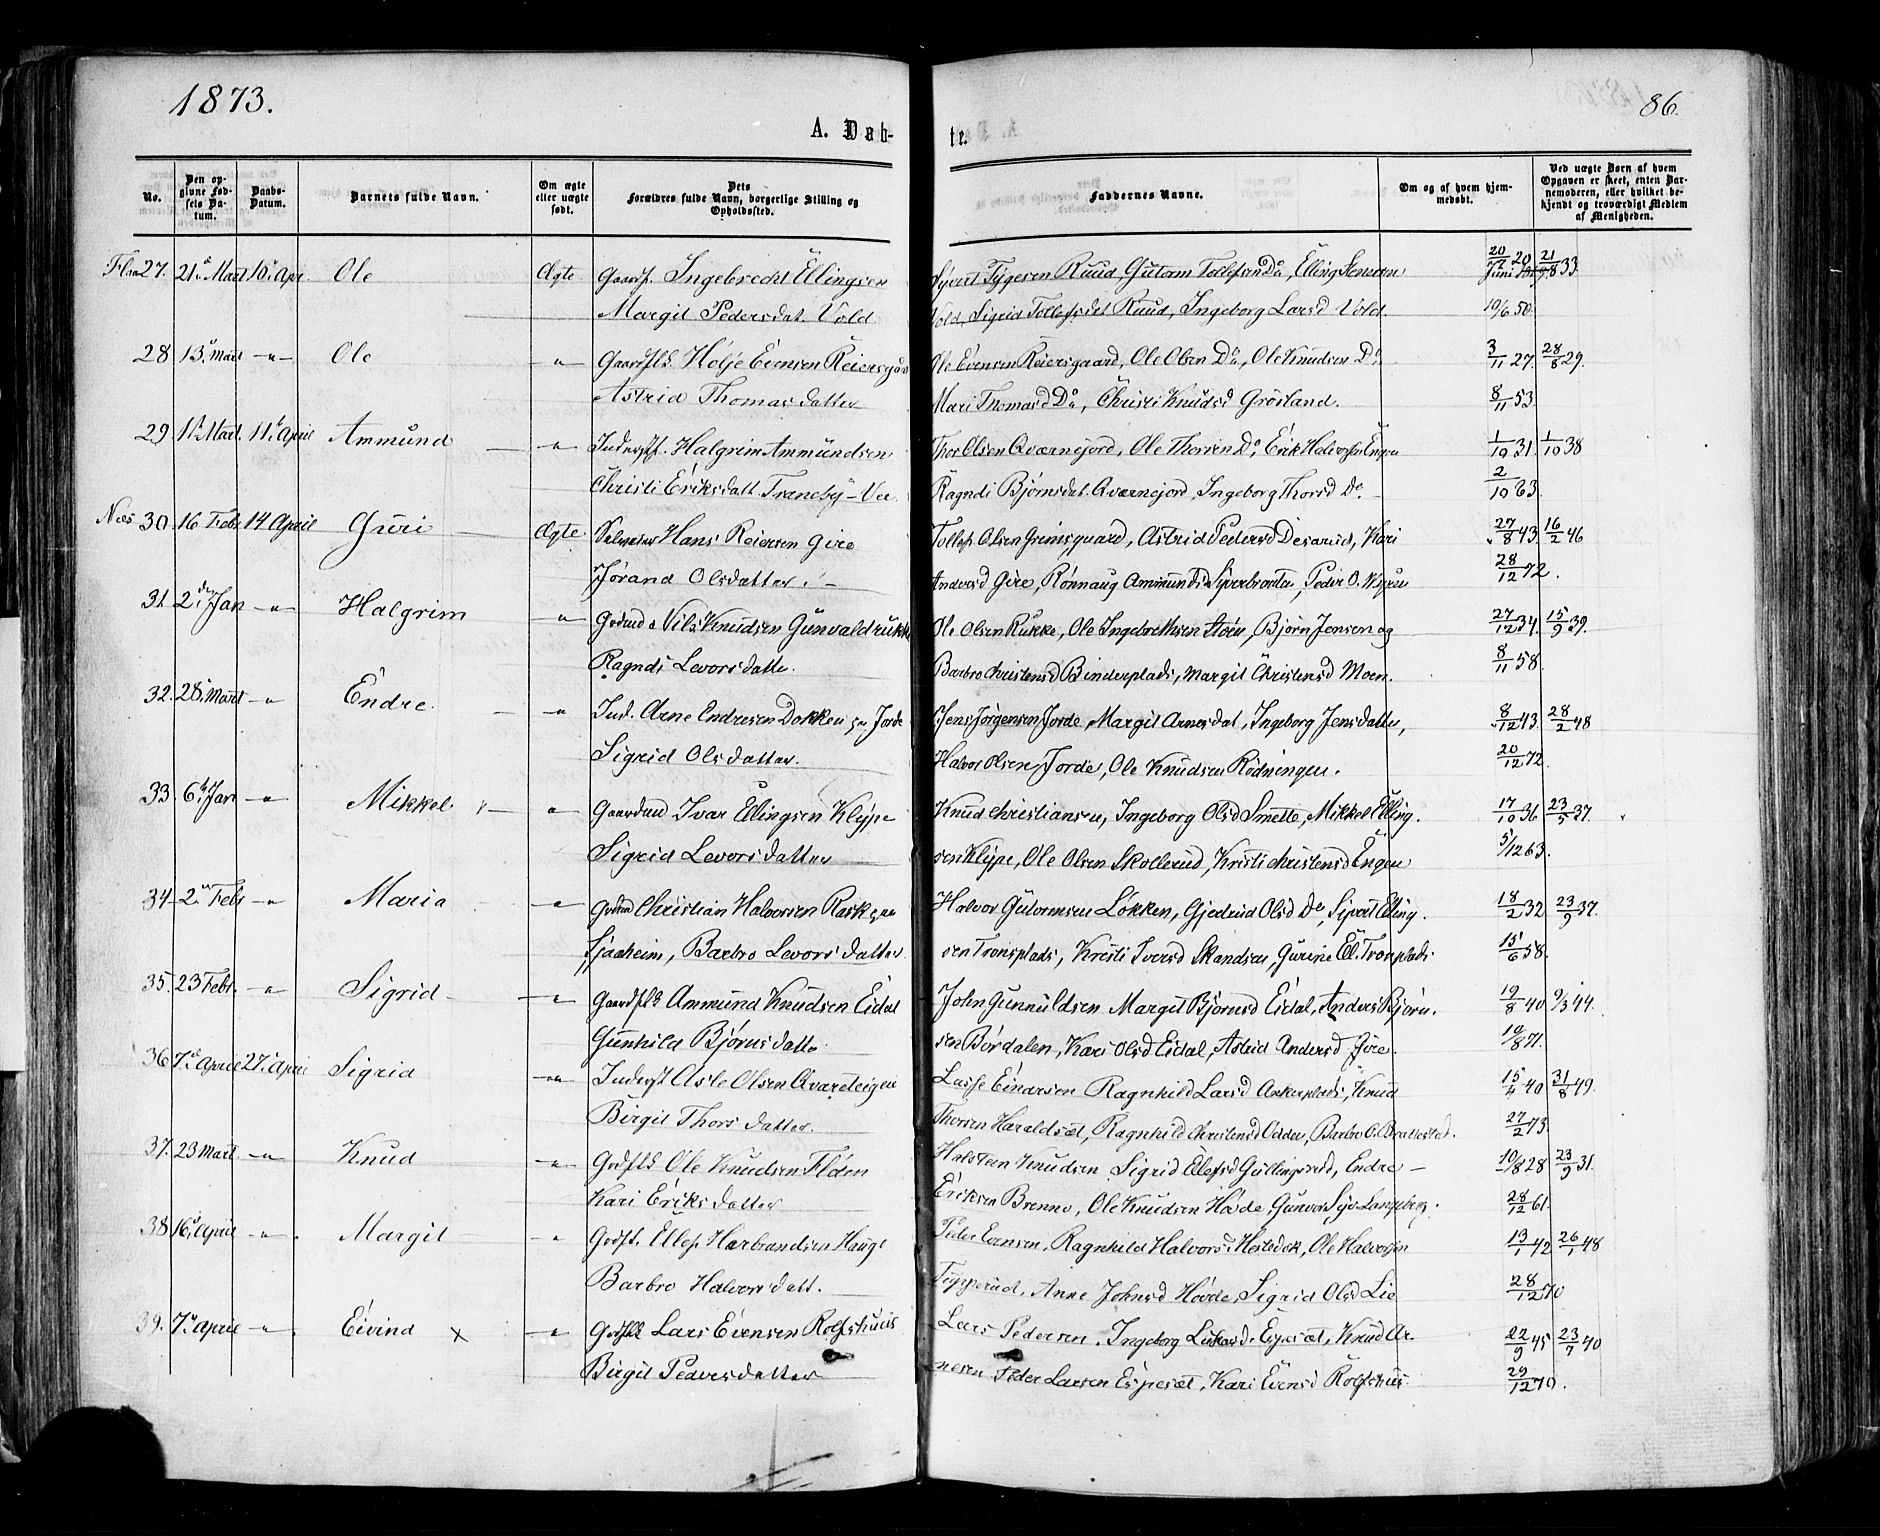 1873.
86.
A. Døb-
te.
No.
Den op-
givne Fød-
sels Da-
tum.
Daabs-
Datum.
Barnets fulde Navn.
Om ægte
eller uægte
født.
Dets
Forældres fulde Navn, borgerlige Stilling og
Opholdssted.
Faddernes Navne.
Om og af hvem hjem-
medøbt.
Ved uægte Børn af hvem
Opgaven er skeet, enten Bar-
nemoderen, eller hvilket be-
kjendt og troværdigt Medlem
af Menigheden.
Flaa 27. 21 Mart 10 Apr. Ole Ægte Gaardf. Ingebrecht Ellingsen Syvert Tygesen Ruud, Gutorm Tollefsen Do, Elling Jensen 33.
Margit Pedersdat. Vold Vold, Sigrid Tollefsdt Ruud, Ingeborg Larsd Vold. 10/6 50.
28 13 Mart -"- Ole " Gaardflk Holje Evensen Reiersgaard Ole Evensen Reiersgaard, Ole Olsen Do, Ole Knudsen Do, 3/11 27. 28/8 29.
Astrid Thomasdatter Mari Thomasd Do, Christi Knudsd Grösland. 8/11 53.
29 11 Mart. 11 April Ammund -"- Inderst. Halgrim Ammundsen Thor Olsen Qværnejord, Ole Thorsen Do, Erik Halvorsen Engen 1/10 31 1/10 38
Christi Eriksdatt. Traneby-Vee Ragndi Bjørnsdat. Qværnejord, Ingeborg Thorsd Do - 2/10 63.
Næs 30 16 Febr 14 April Guri Ægte Hans Reiersen Gire Tollef Olsen Grimsgaard, Astrid Pedersd Desarud, Kari 27/8 43 16/2 46
Jörand Olsdatter. - Andersd Gire, Rönnaug Ammundsd, Peder O. 28/12 72.
31 2 Jan -"- Halgrim -"- Gbrmd Nils Knudsen Gunvaldrukke Ole Olsen Rukke, Ole Ingebrethsen Støen, Björn Jensen og 27/12 34. 15/9 39.
Ragndi Levorsdatter. Barbro Christensd Binderplads, Margit Christensd Moen. 8/11 58.
32. 28 Mart -"- Endre - -"- Ind. Arne Endresen Dokken Jorde Jens Jörgensen Jorde, Margit Arnesdat, Ingeborg Jensdatter, 8/12 43. 28/2 48
Sigrid Olsdatter. Halvor Olsen Jorde, Ole Knudsen Rödningen. 20/12 72.
33 6 Jan -"- Mikkel x- -"- Gaardmd Ivar Ellingsen Klype Knud Christiansen, Ingeborg Olsd Smette, Mikkel Elling- 17/10 36 23/5 37.
Sigrid Levorsdatter sen Klype, Ole Olsen Skollerud, Kristi Christensd Engen 5/12 63.
34 2 Febr -"- Maria -"- Gbrmd Christian Halvorsen Rask Halvor Gutormsen Løkken, Gjedrud Olsd Do, Sivert Elling- 18/2 32 23/9 37.
Sjaaheim, Barbro Levorsdatter sen Tronsplads, Kristi Iversd Skandsen, Gurine El. Tronplads 15/6 58.
35. 23 Febr. -"- Sigrid - -"- Gaardflk Ammund Knudsen Eidal John Gunnuldsen Margit Bjørnsd Eidal, Anders Bjørn- 19/8 40 9/3 44.
Gunhild Bjørnsdatter. sen Børdalen, Kari Olsd Eidal, Astrid Andersd Gire. 19/8 71.
36 7 April 27 April Sigrid -"- Inderst Asle Olsen Qvarteigen Lasse Einarsen Ragnhild Larsd Ankerplads, Knud 15/4 40 31/8 49.
Birgit Thorsdatter. Thorsen Haraldset, Ragnhild Christensd Odden, Barbro O. Brattested. 27/2 73.
37. 23 Mart. -"- Knud -"- Gbrflk Ole Knudsen Flöden Halsten Knudsen Sigrid Ellefsd Gullingsrud, Endre - 10/8 28 23/9 31.
Kari Eriksdatter Eriksen Brenno, Ole Knudsen Hovde, Gunvor Syv. Langeberg. 28/12 61.
38 16 April -"- Margit -"- Gbrf. Ellef Harbrandsen Hauge Peder Evensen, Ragnhild Halvorsd Hestedok, Ole Halvorsen 13/1 42 26/1 48
Barbro Halvorsdatt. Typperud, Anne Johnsd Hovde, Sigrid Olsd Lie 28/12 70
39. 7 April -"- Eivind x -"- Gbrflk Lars Evensen Rolfshuus Lars Pedersen. Ingeborg Espeset, Knud Ar- 22/9 45 23/7 40
Birgit Pedersdatter nesen Peder Larsen Espeset, Kari Evensd Rolfshuus 29/12 70.